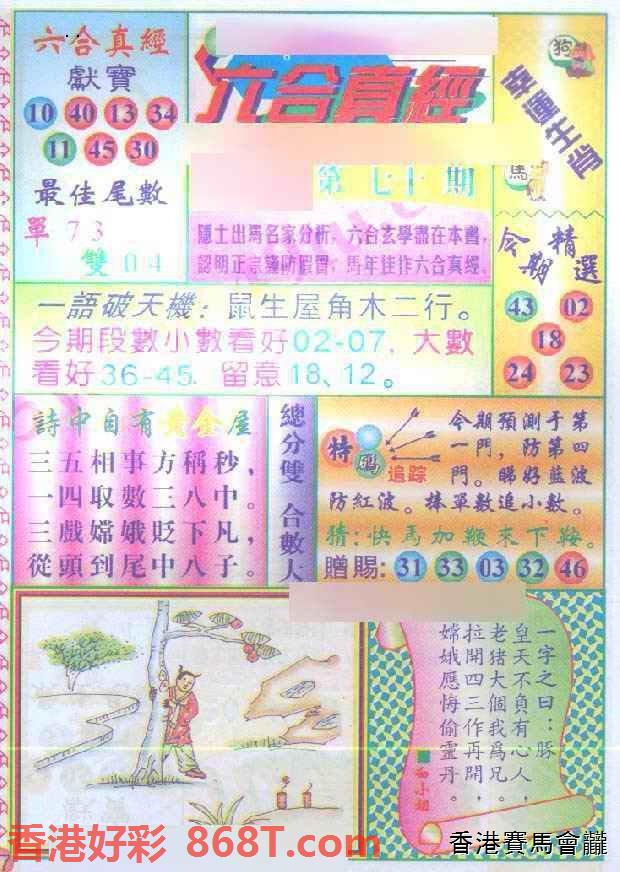 六合真經
獻寶
10 40 13 34
11 45 30
最佳尾數
單 73
雙 04
六合真經
第七十期
隱士出馬名家分析，六合玄學盡在本書，
認明正宗謹防假冒，馬年佳作六合真經
幸運生肖
狗
馬
今期精選
43 02
18
24 23
一語破天機：鼠生屋角木二行。
今期段數小數看好02-07，大數
看好36-45 留意18、12。
詩中自有黃金屋
三五相事方稱秒，
一四取數三八中。
三戲嫦娥貶下凡，
從頭到尾中八子。
總分雙 合數大
特碼
追踪
今期預測于第
一門，防第四
門。睇好藍波
防紅波。棒單數追小數。
猜：快馬加鞭來下鞍。
贈賜：31 33 03 32 46
一字之曰：豚
皇天不負有心人，
老猪大個我爲兄。
拉開四三作再開，
嫦娥應悔偷靈丹。
香港好彩 868T.com
香港賽馬會